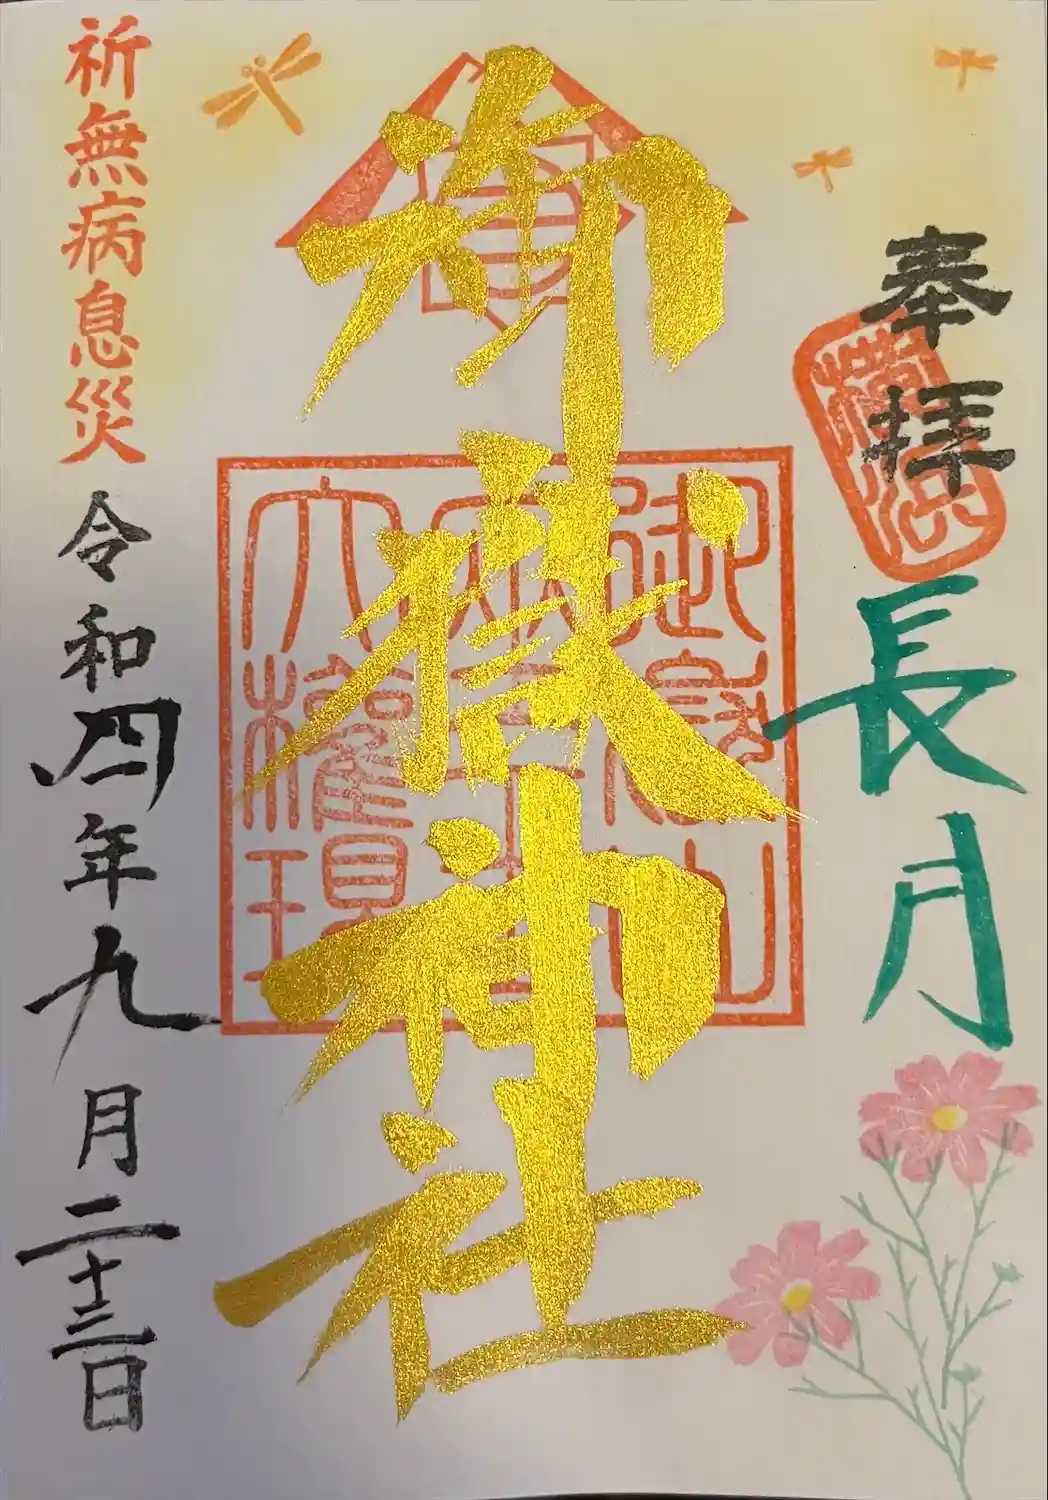 奉拝
横浜
長月
御嶽神社
御嶽山
大權現
祈無病息災
令和四年九月二十三日